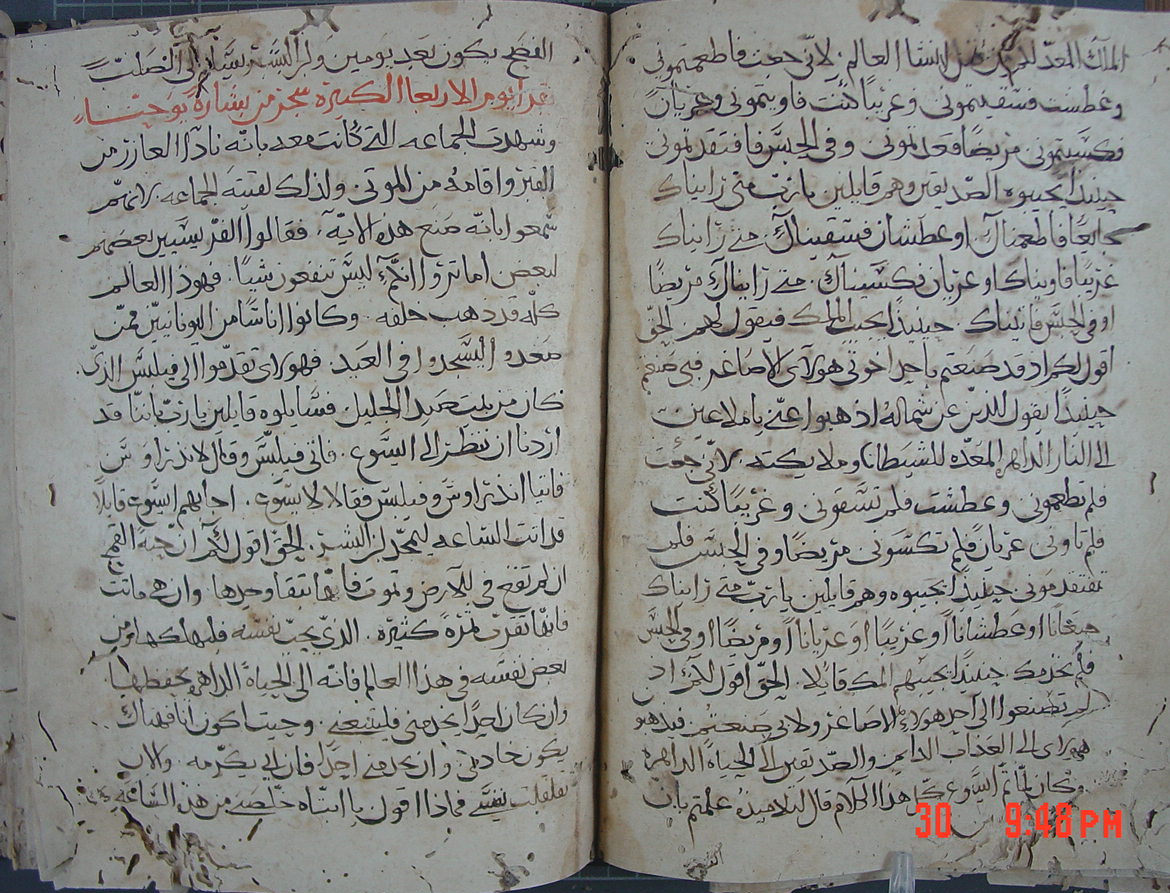 الملك المعد لكم من قبل انشا العالم. لاني جعت فاطعمتموني
وعطشت فسقيتموني وغريبًا كنت فاويتموني وعريان
فكسيتموني مريضًا فعدتموني وفي الحبس فافتقدتموني
حينيذًا يجيبوه الصديقين وهم قايلين يا رب متى رايناك
جايعًا فاطعمناك او عطشان فسقيناك. متى رايناك
غريبًا فاويناك او عريان فكسيناك. متى رايناك مريضًا
او في الحبس فاتيناك. حينيذًا يجيب الملك فيقول لهم الحق
اقول لكم اد قد صنعتم باحد اخوتي هولاى الاصاغر فبي صنعتم
حينيذًا يقول للدين عن شماله اذهبوا عني يا ملاعين
الى النار الداهره المعده للشيطان وملايكته. لاني جعت
فلم تطعموني وعطشت فلم تسقوني وغريبًا كنت
فلم تاوني عريان فلم تكسوني مريضًا وفي الحبس فلم
تفتقدموني حينيذًا يجيبوه وهم قايلين يا رب متى رايناك
جيعانًا او عطشانًا او غريبًا او عريانًا او مريضًا او في الحبس
فلم نخدمك حينيذًا يجيبهم الملك قايلا. الحق اقول لكم اد
لم تصنعوا الى احد هولاى الاصاغر ولا بي صنعتم فيدهبو
هولاى الى العذاب الدايم والصديقين الى الحياة الداهره
وكان لما تم اليسوع كل هذا الكلام قال لتلاميذه علمتم بان
الفصح
الفصح يكون بعد يومين وابن البشر يسلم الى الصلب
تقرا يوم الاربعا الكبيره سحر من بشارة يوحنا
وشهدت الجماعه التي كانت معه بانه نادا العازر من
القبر واقامه من الموتى. ولذلك لقيته الجماعه لانهم
سمعوا بانه صنع هذه الايه. فقالوا الفريسيين بعضهم
لبعض اما تروا انكم ليس تنفعون شيا. فهوذا العالم
كله قد ذهب خلفه. وكانوا اناسًا من اليونانيين ممن
صعدو اليسجدوا في العيد. فهولاى تقدموا الى فيلبس الذي
كان من بيت صيدا الجليل. فسايلوه قايلين يا رب اننا قد
اردنا ان ننظر الى اليسوع. فاتى فيلبس وقال لاندراوس
فاتيا اندراوس وفيلبس فقالا لايسوع. اجابهم ايسوع قايلا
قد اتت الساعه ليمجد ابن البشر. الحق اقول لكم ان حبة القمح
ان لم تقع في الارض وتموت فانها تبقا وحدها وان هي ماتت
فانها تقرب ثمرة كثيره. الذي يحب نفسه فليهلكها ومن
يبغض نفسه في هذا العالم فانه الى الحياة الداهره يحفظها
وان كان احدًا يخدمني فليتبعني وحيت اكون انا فهناك
يكون خادمي وان يخدمني احدًا فان ابي يكرمه. والان
تقلقلت نفسي فماذا اقول يا ابتاه خلصني من هذه الساعه
30 9:48 PM